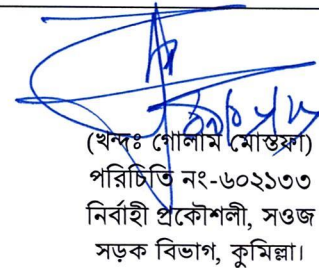 (খন্দঃ গোলাম মোস্তফা)
পরিচিতি নং-৬০২১৩৩
নির্বাহী প্রকৌশলী, সওজ
সড়ক বিভাগ, কুমিল্লা।